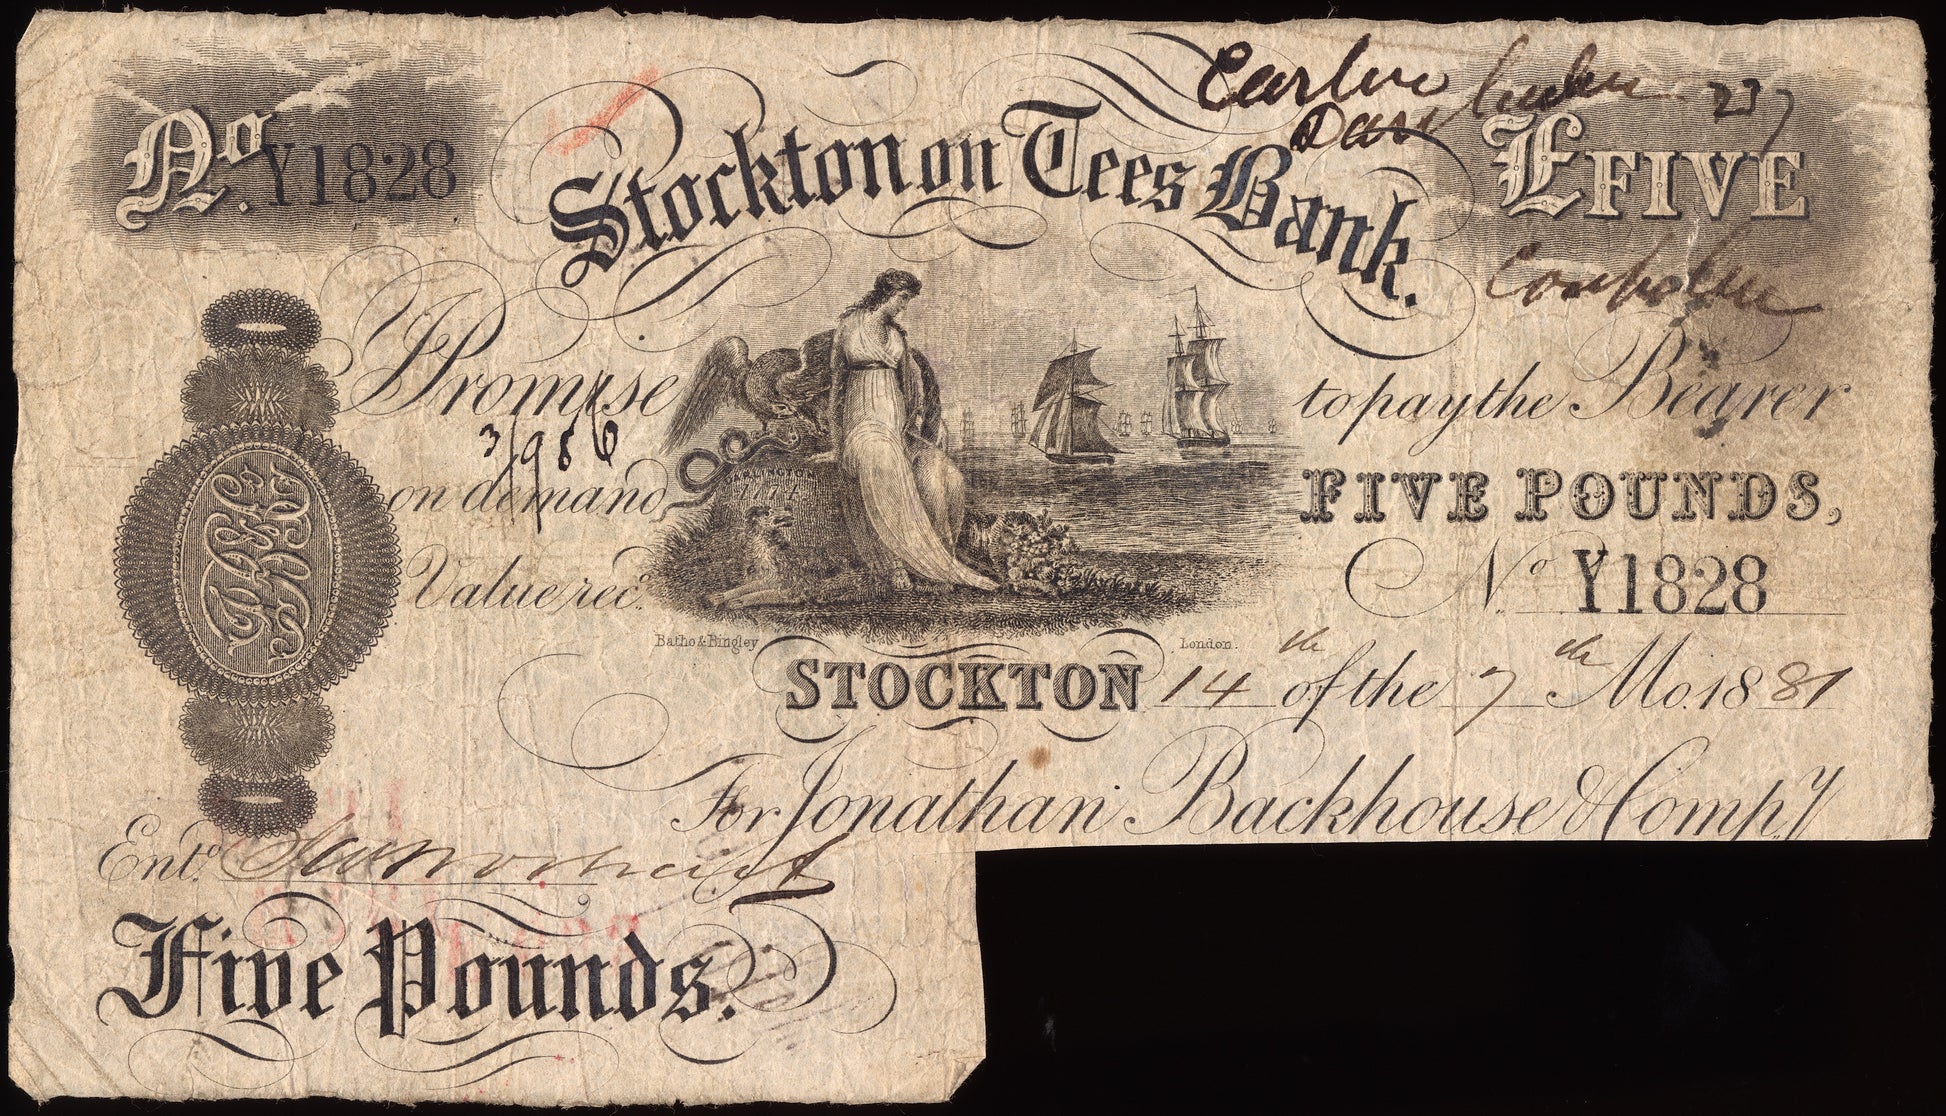 No. Y1828
Stockton on Tees Bank.
£FIVE
I Promise to pay the Bearer
on demand FIVE POUNDS,
Value recd. No Y1828
DARLINGTON
Batho & Bingley London.
STOCKTON 14th of the 7th Mo. 1881
For Jonathan Backhouse & Compy
Entd.
Five Pounds.